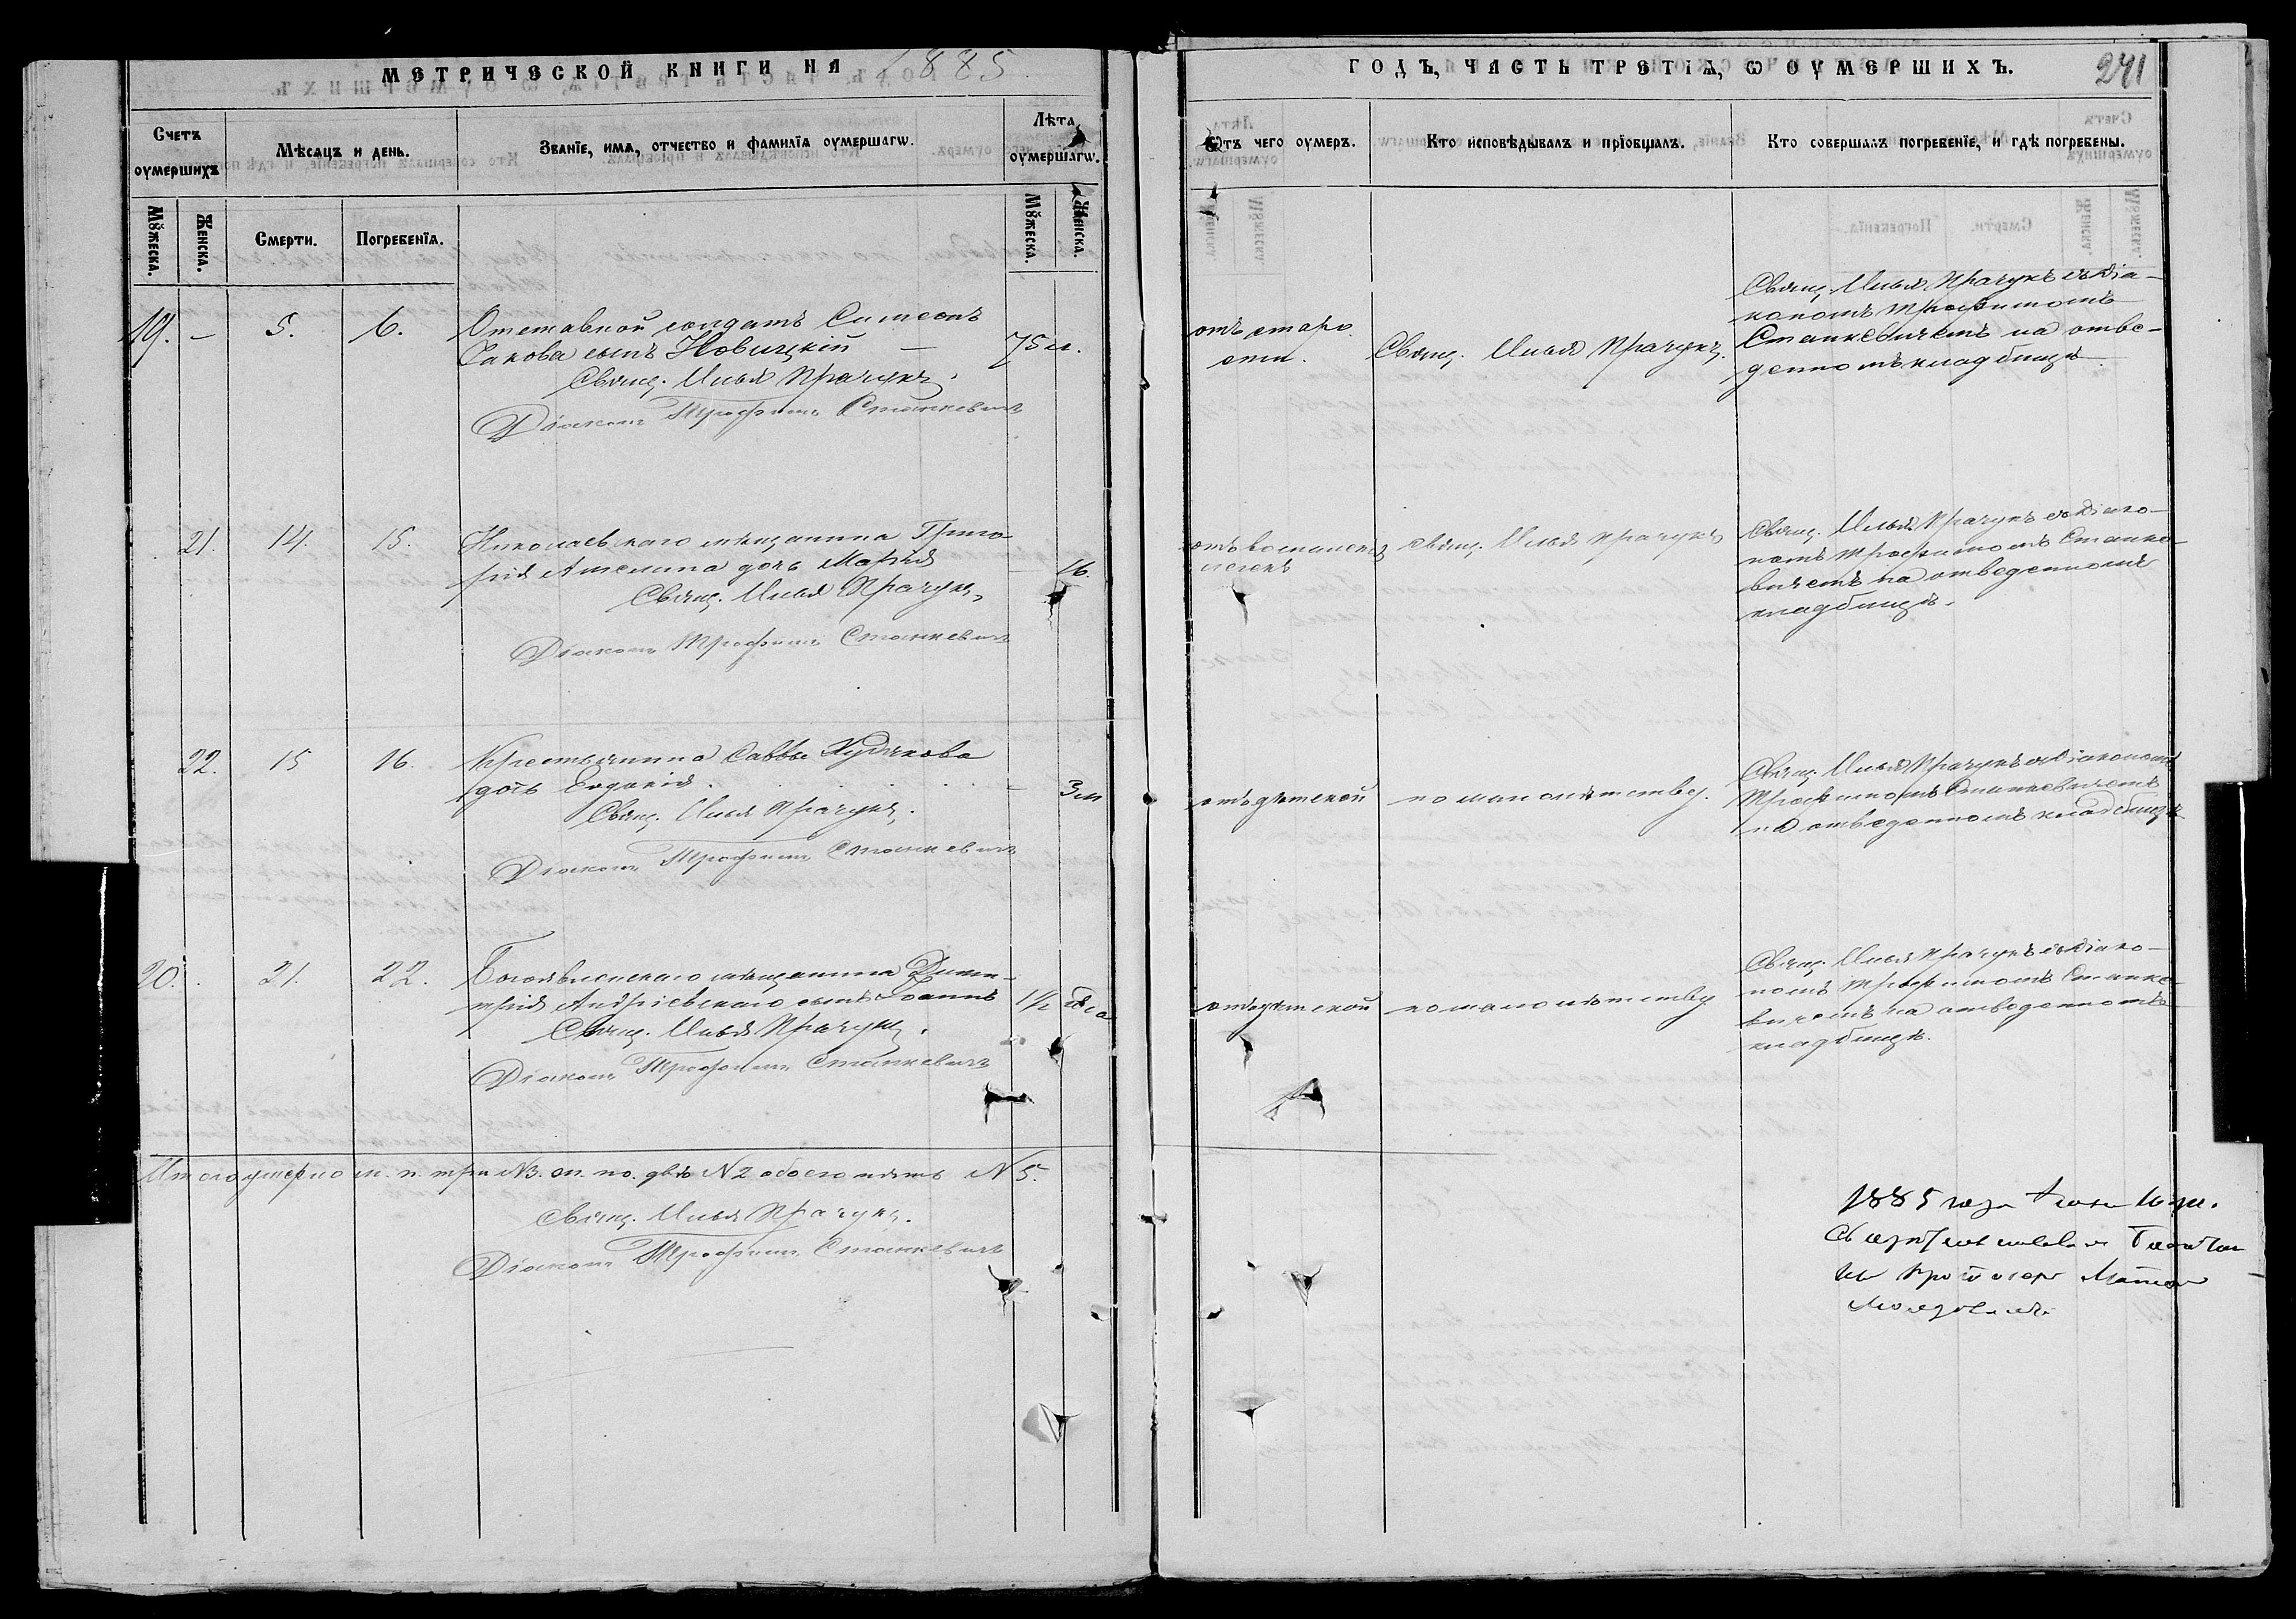 МЕТРИЧЕСКОЙ КНИГИ НА 1885
ГОДЪ, ЧАСТЬ ТРЕТІѦ, Ѡ ОУМЕРШИХЪ.
241
Счетъ оумершихъ
Мѣсяцъ и день.
Званїе, има, отчество и фамилїа оумершагѡ.
Лѣта оумершагѡ.
Мꙋжеска.
Женска.
Смерти.
Погребенїа.
Мꙋжеска.
Женска.
Отъ чего оумеръ.
Кто исповѣдывалъ и прїобщалъ.
Кто совершалъ погребенїе, и гдѣ погребены.
19. — 5. 6.
Отставной солдатъ Симеонъ
Іакова сынъ Новицкій —
75 л.
Свящ. Илья Прачукъ.
Діаконъ Трофимъ Станкевичъ
отъ старо
сти.
Свящ. Илья Прачукъ.
Свящ. Илья Прачукъ съ діа-
кономъ Трофимомъ
Станкевичемъ на отве-
денномъ кладбищѣ
21. 14. 15.
Николаевскаго мѣщанина Григо-
рія дочь Марія
16.
Свящ. Илья Прачукъ,
Діаконъ Трофимъ Станкевичъ
отъ воспаленія
легкъ
Свящ. Илья Прачукъ
Свящ. Илья Прачукъ съ діако-
номъ Трофимомъ Станке-
вичемъ на отведенномъ
кладбищѣ.
22. 15 16.
Крестьянина Саввы Худякова
дочь Евдокія
3 м
Свящ. Илья Прачукъ.
Діаконъ Трофимъ Станкевичъ
отъ дѣтской
по малолѣтству.
Свящ. Илья Прачукъ съ діакономъ
Трофимомъ Станкевичемъ
на отведенномъ кладбищѣ
20. 21. 22.
Богоявленскаго мѣщанина Дими-
трія Андріевскаго сынъ Іоаннъ
1½ года
Свящ. Илья Прачукъ.
Діаконъ Трофимъ Станкевичъ
отъ дѣтской
по малолѣтству
Свящ. Илья Прачукъ съ діако-
номъ Трофимомъ Станке-
вичемъ на отведенномъ
кладбищѣ.
Итого умерло м. п. три №3. ж. по. двѣ №2 обоего пять №5.
Свящ. Илья Прачукъ.
Діаконъ Трофимъ Станкевичъ
1885 года